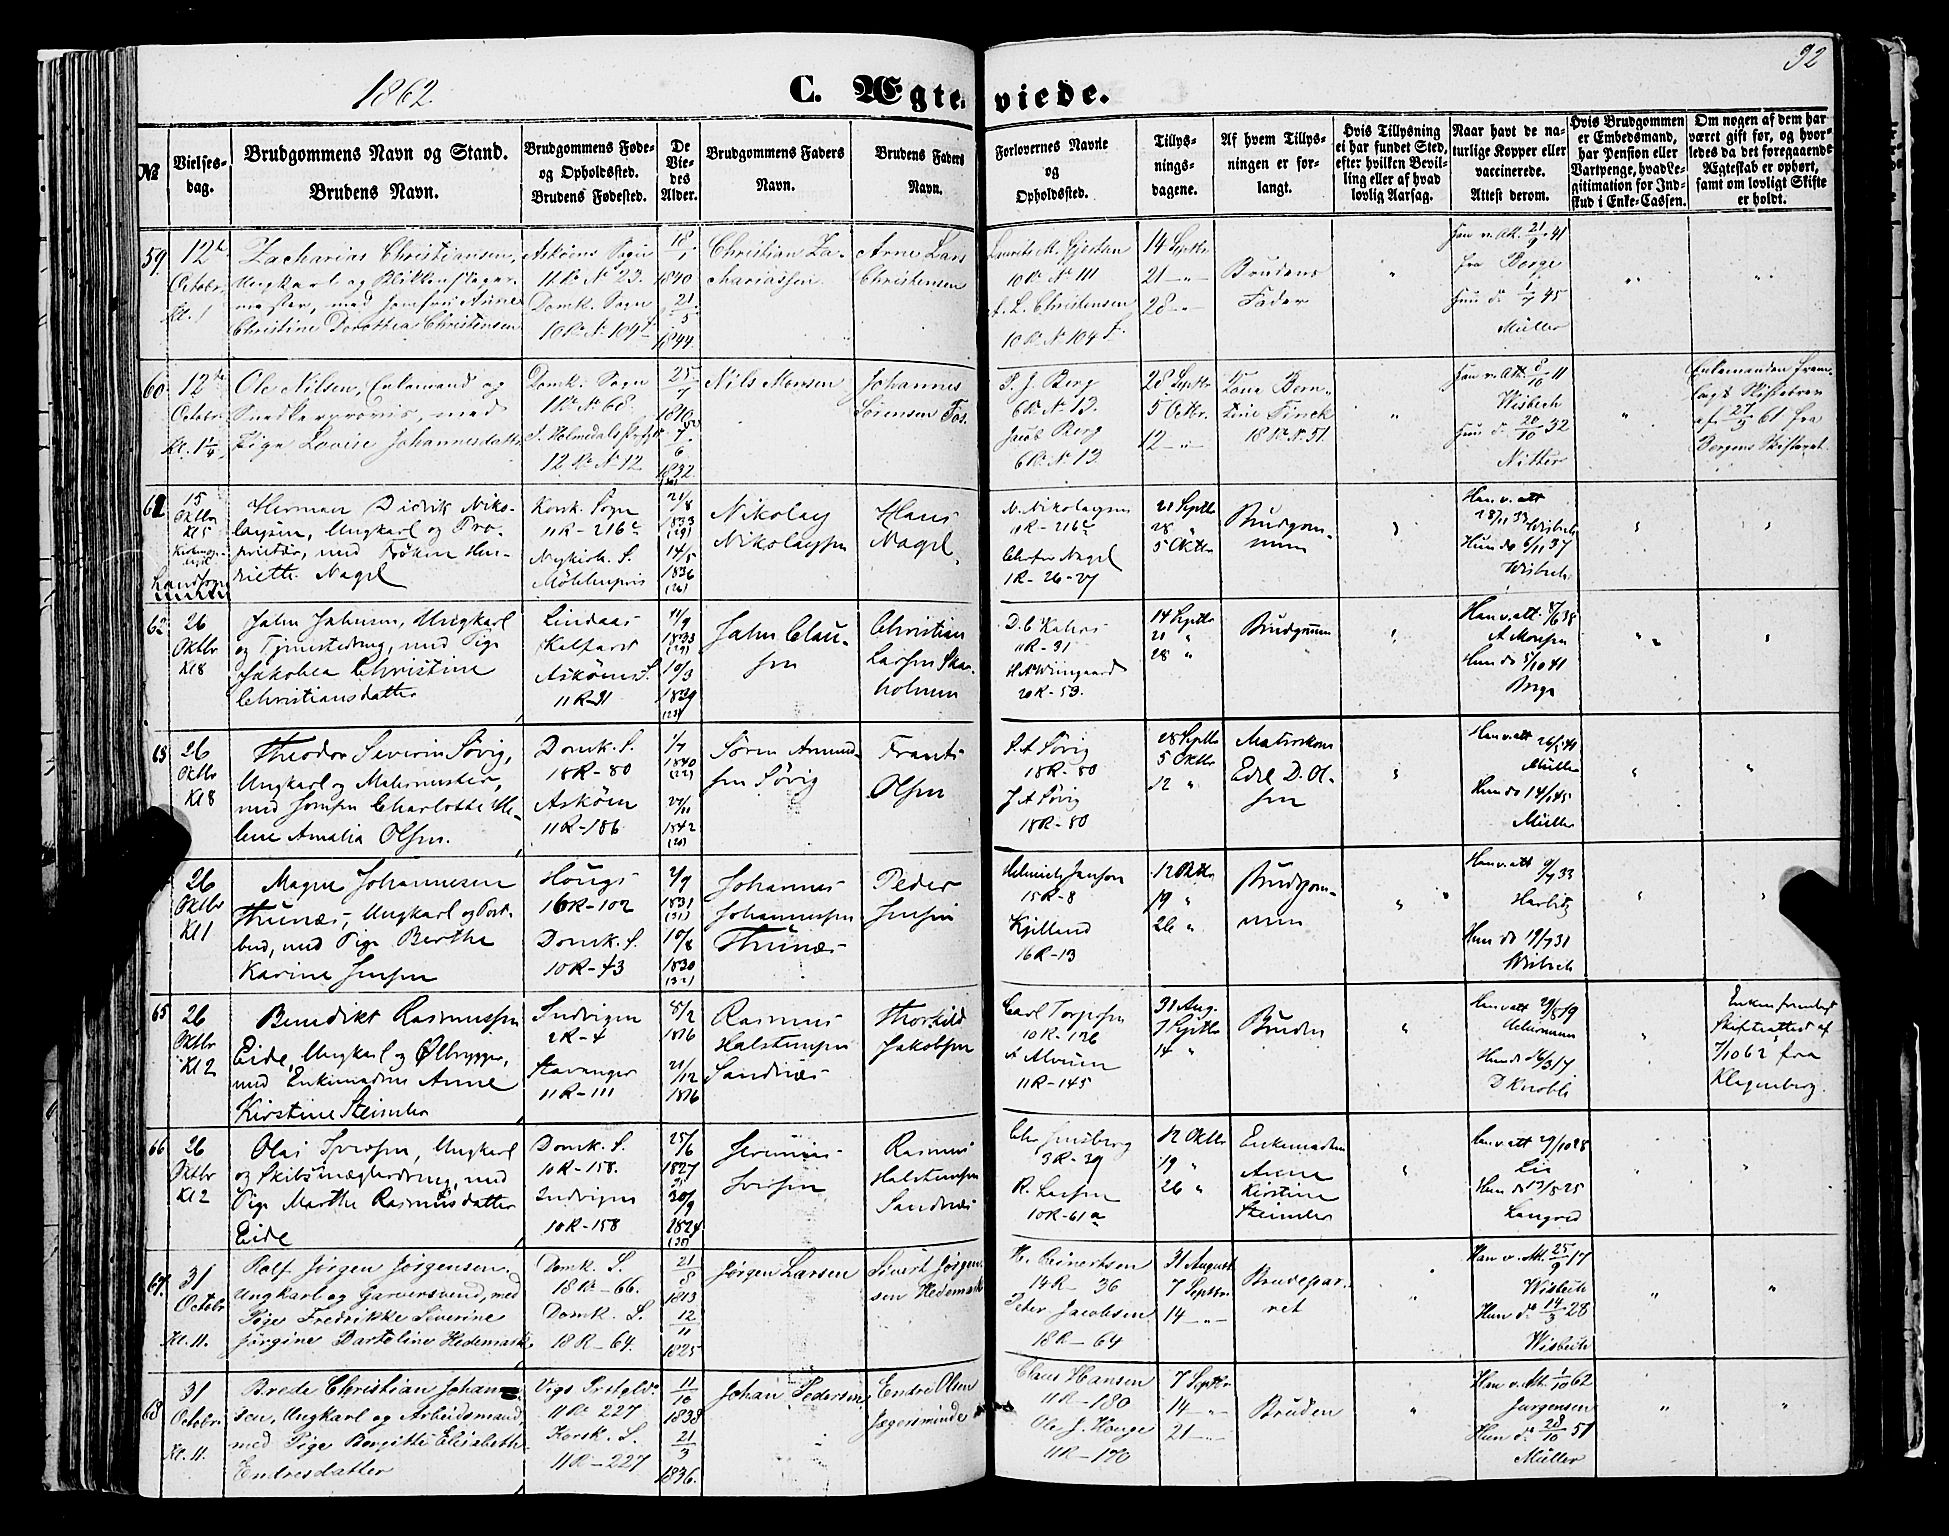 92
1862.
C. Ægteviede.
№
Vielses-
dag.
Brudgommens Navn og Stand.
Brudens Navn.
Brudgommens Føde-
og Opholdssted.
Brudens Fødested.
De
Vie-
des
Alder.
Brudgommens Faders
Navn.
Brudens Faders
Navn.
Forlovernes Navne
og
Opholdssted.
Tillys-
nings-
dagene.
Af hvem Tillys-
ningen er for-
langt.
Hvis Tillysning
ei har fundet Sted,
efter hvilken Bevil-
ling eller af hvad
lovlig Aarsag.
Naar havt de na-
turlige Kopper eller
vaccinerede.
Attest derom.
Hvis Brudgommen
er Embedsmand,
har Pension eller
Vartpenge, hvad Le-
gitimation for Ind-
skud i Enke-Cassen.
Om nogen af dem har
været gift før, og hvor-
ledes da det foregaaende
Ægteskab er ophørt,
samt om lovligt Skifte
er holdt.
59.
12te
Octobr.
Kl. 1
Zacharias Christiansen,
Ungkarl og Blikkenslager-
mester, med Jomfru Anne
Christine Dorothea Christensen
Askøens Sogn
11 R. N. 23.
Domk. Sogn
10 R. N. 104
18/1
1840
21/5
1844.
Christian Za-
chariassen
Arne Lars
Christensen
10 R. N. 111
A. L. Christensen
10 R. N. 104
14 Septbr
21 — "
28 — "
Brudens
Fader
Han v. Att. 21/9 41
fra Berge
Hun do 1/7 45
Müller
60.
12te
Octobr.
Ole Nilsen, Enkemand og
med
Pige Lovise Johannesdatter
Domk. Sogn
11 R. N. 68.
12 R. N. 12
25/7
1810
7/6
1832.
Nils Monsen
Johannes
Sørensen Fos.
P. J. Berg
6 R. N. 13.
Jacob Berg
6 R. N. 13
28 Septbr
5 Octbr.
12 — "
18 R. N. 51
Han v. Att. 8/10 11
Wisbech
Hun do 20/10 32
Nitter
Enkemanden frem-
lagt Skiftebrev
af 27/9 61 fra
Bergens Skifteret.
61
15
Oktbr
Kl 5
Landsogn
Herman Didrik Niko-
laysen, Ungkarl og Pro-
prietær, med Frøken Hen-
riette Nagel
Korsk. Sogn
11 R - 216 c
Nykirk. S.
Möhlenpris
21/8
1833
(29)
14/5
1836
(26)
Nikolay
Nikolaysen
Hans
Nagel
N. Nikolaysen
11 R - 216 c
Chr. Nagel
1 R - 26-27
21 Septbr
28 "
5 Oktbr
Brudgom-
men
Han v. att
28/11 33 Wisbech
Hun do 6/11 37
Wisbech
62
26
Oktbr
Kl 8
Jahn Jahnsen, Ungkarl
og Tjenestedreng, med Pige
Jakobea Christine
Christiansdatter
Lindaas
Kalfaret
Askøens S.
11 R - 31
11/9
1833
(29)
10/3
1839
(23)
Jahn Clau-
sen
Christian
Larsen Ska-
holmen
D. C. Kahrs
11 R - 31
H. A. Wiingaard
20 R - 53.
14 Septbr
21 "
28 "
Brudgommen
Han v. att. 8/6 38
A Monsen
Hun do 5/10 41
Berge
63
26
Oktbr
Kl 8
Theodor Severin Søvig,
Ungkarl og Malermester,
med Jomfru Charlotte He-
lene Amalia Olsen.
Domk. S.
18 R - 80
Askøen
11 R - 186
1/7
1840
(22)
27/11
1842
(20)
Søren Amund-
sen Søvig
Frants
Olsen
S. A Søvig
18 R - 80
J A Søvig
18 R - 80
28 Septbr
5 Oktbr
12 "
Edl D. Ol-
sen
Han v. att 26/5 41
Müller
Hun do 14/8 45
Müller
26
Oktbr
Kl 1
Magne Johannesen
Thunæs, Ungkarl og Post-
bud, med Pige Berthe
Karine Jensen
Hougs
16 R - 102
Domk. S.
10 R - 43
2/9
1831
(31)
10/8
1830
(32)
Johannes
Johannessen
Thunæs
Peder
Jensen
Helmich Janson
15 R - 8
Kjelland
16 R - 13
12 Oktbr
19 "
26 "
Brudgom-
men
Han v. att 9/7 33
Harbitz
Hun do 19/7 31
Wisbech
65
26
Oktbr
Kl 2
Benedikt Rasmussen
Eide, Ungkarl og Ølbrygger,
med Enkemadme Anne
Kirstine Steimler
Indvigen
2 R - 4
Stavanger
11 R - 111
8/2
1816
21/12
1816
Rasmus
Halstensen
Sandnæs
Thorkild
Jakobsen
Carl Torjesen
10 R - 126
11 R - 145
31 Aug.
7 Septbr
14 "
Bruden
Han v att 29/8 19
Hun do 16/3 17
D Knobli
Enken foreviist
Skifteattest af
7/10 62 fra
66
26
Oktbr
Kl 2
Olai Iversen, Ungkarl
og Skibsmæglerdreng, med
Pige Marthe Rasmusdatter
Eide
Domk. S.
10 R - 158.
Indvigen
10 R - 158
25/6
1827
35
30/9
1824
(38)
Jeremias
Iversen
Rasmus
Halstensen
Sandnæs
3 R - 39
R. Larsen
10 R - 61 a
12 Oktbr
19 "
26 "
Enkemadme
Anne
Kirstine
Steimler
Han v att 29/10 28
Lie
Hun do 13/8 25
Langved
67.
31
Octobr
Kl. 11.
Rolf Jørgen Jørgensen.
Ungkarl og Garversvend, med
Pige Fredrikke Severine
Jørgine Bartoline Hedemark.
Domk. S.
18 R - 66.
Domk. S.
18 R - 64.
21/5
1813
12/11
1825
Jørgen Larsen
Sivert Jørgen-
sen Hedemark
H. Reinertsen
14 R - 36
Peter Jacobsen
18 R - 64
31 August
7 Septbr.
14 — "
Brudepar-
ret
Han v. Att. 25/9 17
Wisbech
Hun do 14/3 28
Wisbech
68
31
Octobr
Kl. 11.
Brede Christian Johan-
sen, Ungkarl og Arbeidsmand,
med Pige Bergitte Elisabeth
Endresdatter
Vigs Prstgld.
11 R 227
Korsk. S.
11 R - 227
11/10
1838
21/3
1836.
Johan Pedersen
Endre Olsen
Jægersminde
Claus Hansen
11 R - 180
Ole J. Houge
11 R - 170
7 Septbr
14 — "
21 — "
Bruden
Han v. Att. 1/10 62
Jurgensen
Hun do 28/10 51
Müller